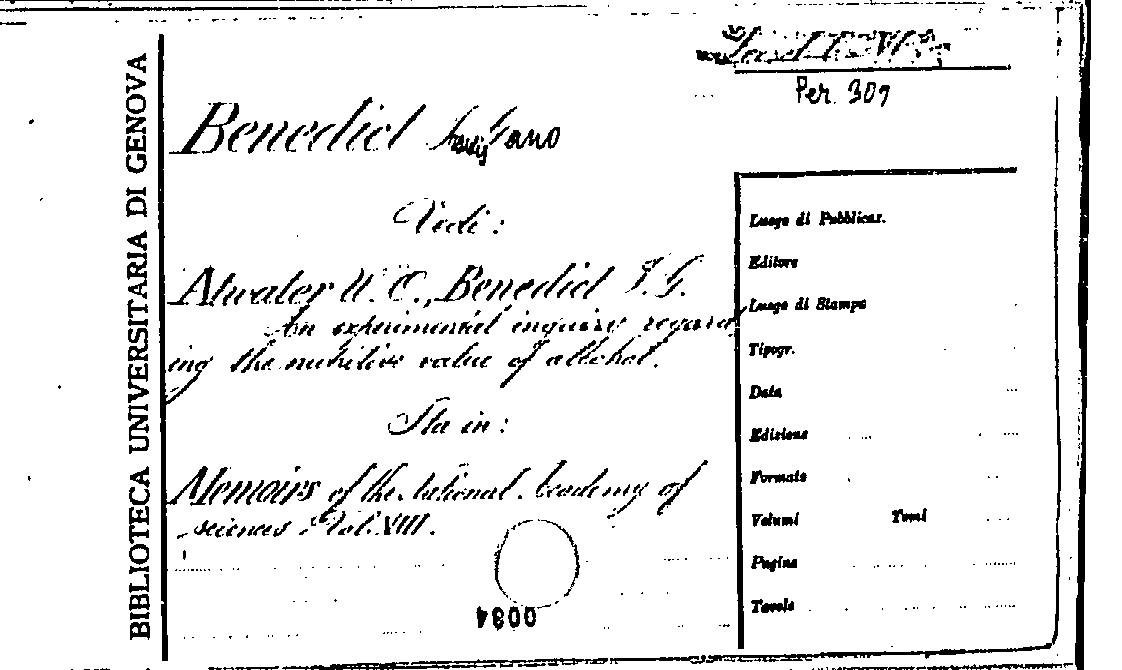 BIBLIOTECA UNIVERSITARIA DI GENOVA
Per. 309
Benedict
Vedi:
Atwater W. O., Benedict F. G.
An experimental inquiry regard
ing the nutritive value of alcohol.
Sta in:
Memoirs of the National Academy of
sciences. Vol. XIII.
0084
Luogo di Pubblicaz.
Editore
Luogo di Stampa
Tipogr.
Data
Edizione
Formato
Volumi Tomi
Pagine
Tavole